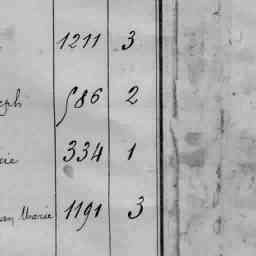 1211 3
eph 586 2
rie 334 1
an Marie 1191 3